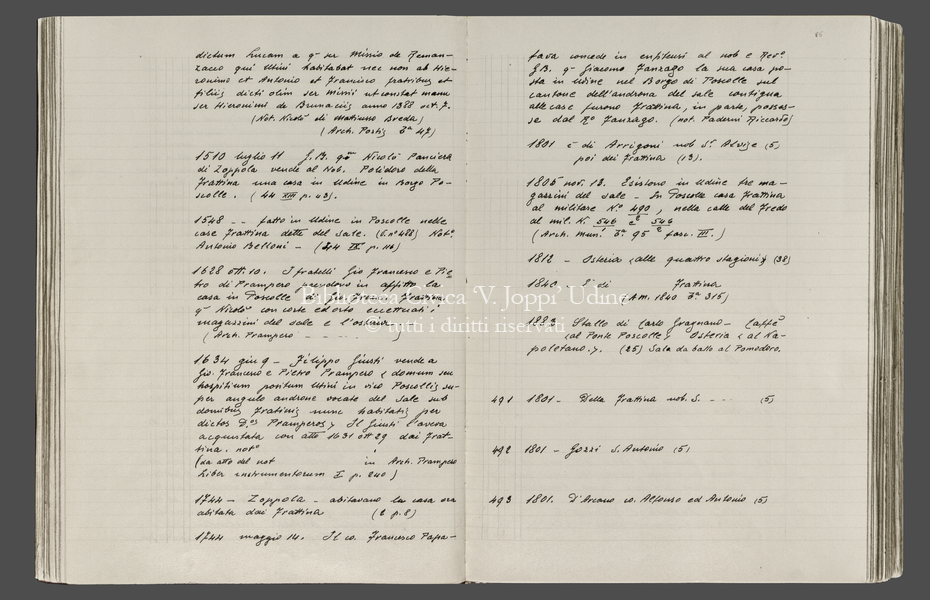 dictum Lucam a qm ser Missio de Reman-
zacco qui Utini habitabat nec non ab Hie-
ronimi et Antonio et Francisco fratribus et
filiis dicti olim ser Missii ut constat manu
ser Hieronimi de Brunacis anno 1388 oct. 7.
(Not. Nicolò di Mattiuso Breda)
(Arch. Portis Bta 47)
1510 luglio 11 G.B. qm Nicolò Panciera
di Zoppola vende al Nob. Polidoro della
Frattina una casa in Udine in Borgo Po-
scolle. (44 XIII p. 43).
1548 -- fatto in Udine in Poscolle nelle
case Frattina dette del sale. Noto
Antonio Belloni - (44 IX p. 116)
1628 ott. 10. I fratelli Gio Francesco e Pie-
tro di Prampero prendono in affitto la
casa in Poscolle di Frattina
qm Nicolò con corte ed orto eccettuati i
magazzini del sale e l'osteria.
(Arch. Prampero - - - - - )
1634 giu 9 - Filippo Giusti vende a
Gio. Francesco e Pietro Prampero < domum seu
hospitium positum Utini in vico Poscollis su-
per angulo androne vocate del sale sub
domibus Fratinis nunc habitatis per
dictos D.os Pramperos > Il Giusti l'aveva
acquistata con atto 1631 ott 29 dai Frat-
tina. noto
(da atto del not in Arch. Prampero
Liber instrumentorum I p. 240)
1744 - Zoppola - abitavano la casa ora
abitata dai Frattina (2 p. 8)
1744 maggio 14. Il co. Francesco Papa-
86
fava concede in enfiteusi al nob e Revo
G.B. qm Giacomo Zanzago la sua casa po-
sta in Udine nel Borgo di Poscolle sul
cantone dell'androna del sale contigua
alle case furono Frattina, in parte, posses-
se dal Ro Zanzago. (not. Paderni Riccardo)
1801 è di Arrigoni nob. Sr Alvise (5)
poi dei Frattina (13).
1805 nov. 13. Esistono in Udine tre ma-
gazzini del sale - In Poscolle casa Frattina
al militare No 490, nella calle del Freddo
al mil. N. 546 e 546
(Arch. mun. Bta 95 fasc. III.)
1812 - Osteria <alle quattro stagioni> (38)
1840. È di Frattina
(Am. 1840 Bta 315)
1883 Stallo di Carlo Gragnano - Caffè
<al Ponte Poscolle> Osteria <al Na-
poletano>. (25) Sala da ballo al Pomodoro.
491 1801 - Della Frattina nob. S. - - (5)
492 1801 - Gozzi S. Antonio (5)
493 1801. D'Arcano co. Alfonso ed Antonio (5)
Biblioteca Civica 'V. Joppi' Udine
© tutti i diritti riservati